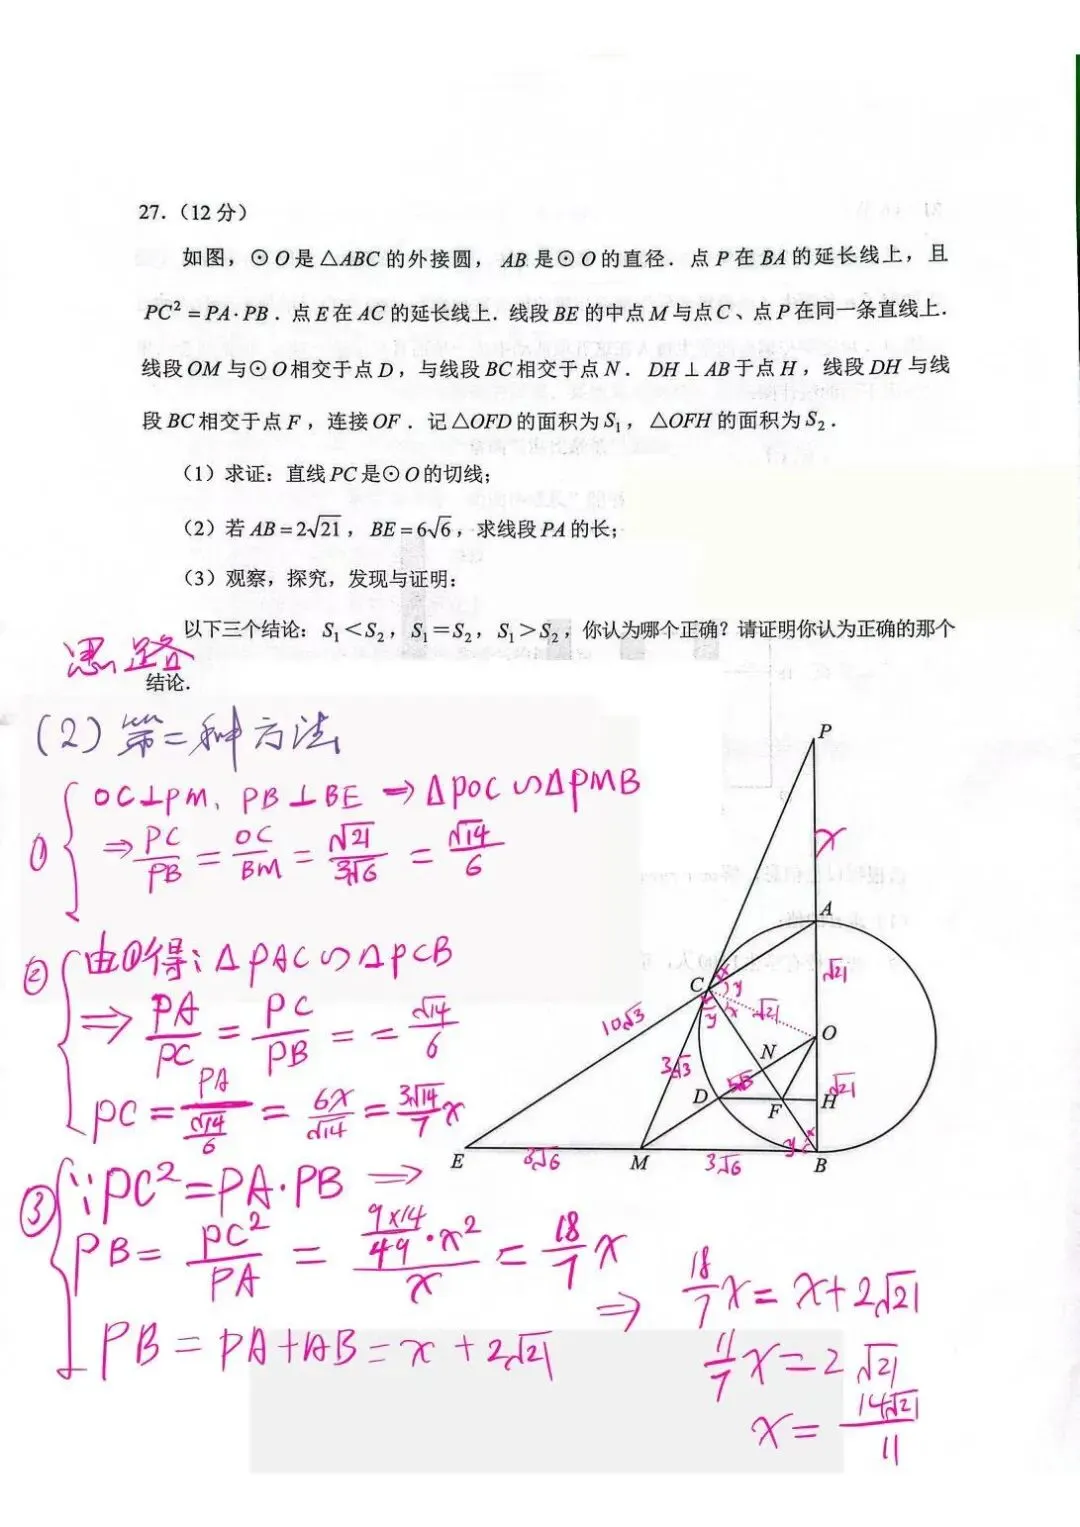 27.（12 分）
如图，⊙O是△ABC的外接圆，AB是⊙O的直径．点P在BA的延长线上，且
PC²=PA·PB．点E在AC的延长线上．线段BE的中点M与点C、点P在同一条直线上．
线段OM与⊙O相交于点D，与线段BC相交于点N．DH⊥AB于点H，线段DH与线
段BC相交于点F，连接OF．记△OFD的面积为S₁，△OFH的面积为S₂．
（1）求证：直线PC是⊙O的切线；
（2）若AB=2√21，BE=6√6，求线段PA的长；
（3）观察，探究，发现与证明：
以下三个结论：S₁<S₂，S₁=S₂，S₁>S₂，你认为哪个正确？请证明你认为正确的那个
结论．
思路
(2) 第二种方法
① OC⊥PM、PB⊥BE ⇒ △POC∽△PMB
⇒ PC/PB = OC/BM = √21/3√6 = √14/6
② 由①得：△PAC∽△PCB
⇒ PA/PC = PC/PB = = √14/6
PC = PA/(√14/6) = 6x/√14 = 3√14/7 x
③ ∵PC²=PA·PB ⇒
PB = PC²/PA = (9×14/49·x²)/x = 18/7 x
PB = PA+AB = x+2√21
⇒ 18/7 x = x+2√21
11/7 x = 2√21
x = 14√21/11
P
x
A
√21
C
x
y
y
x
√21
10√3
3√3
O
N
5√3
√21
D
F
H
y
x
E
3√6
M
3√6
B